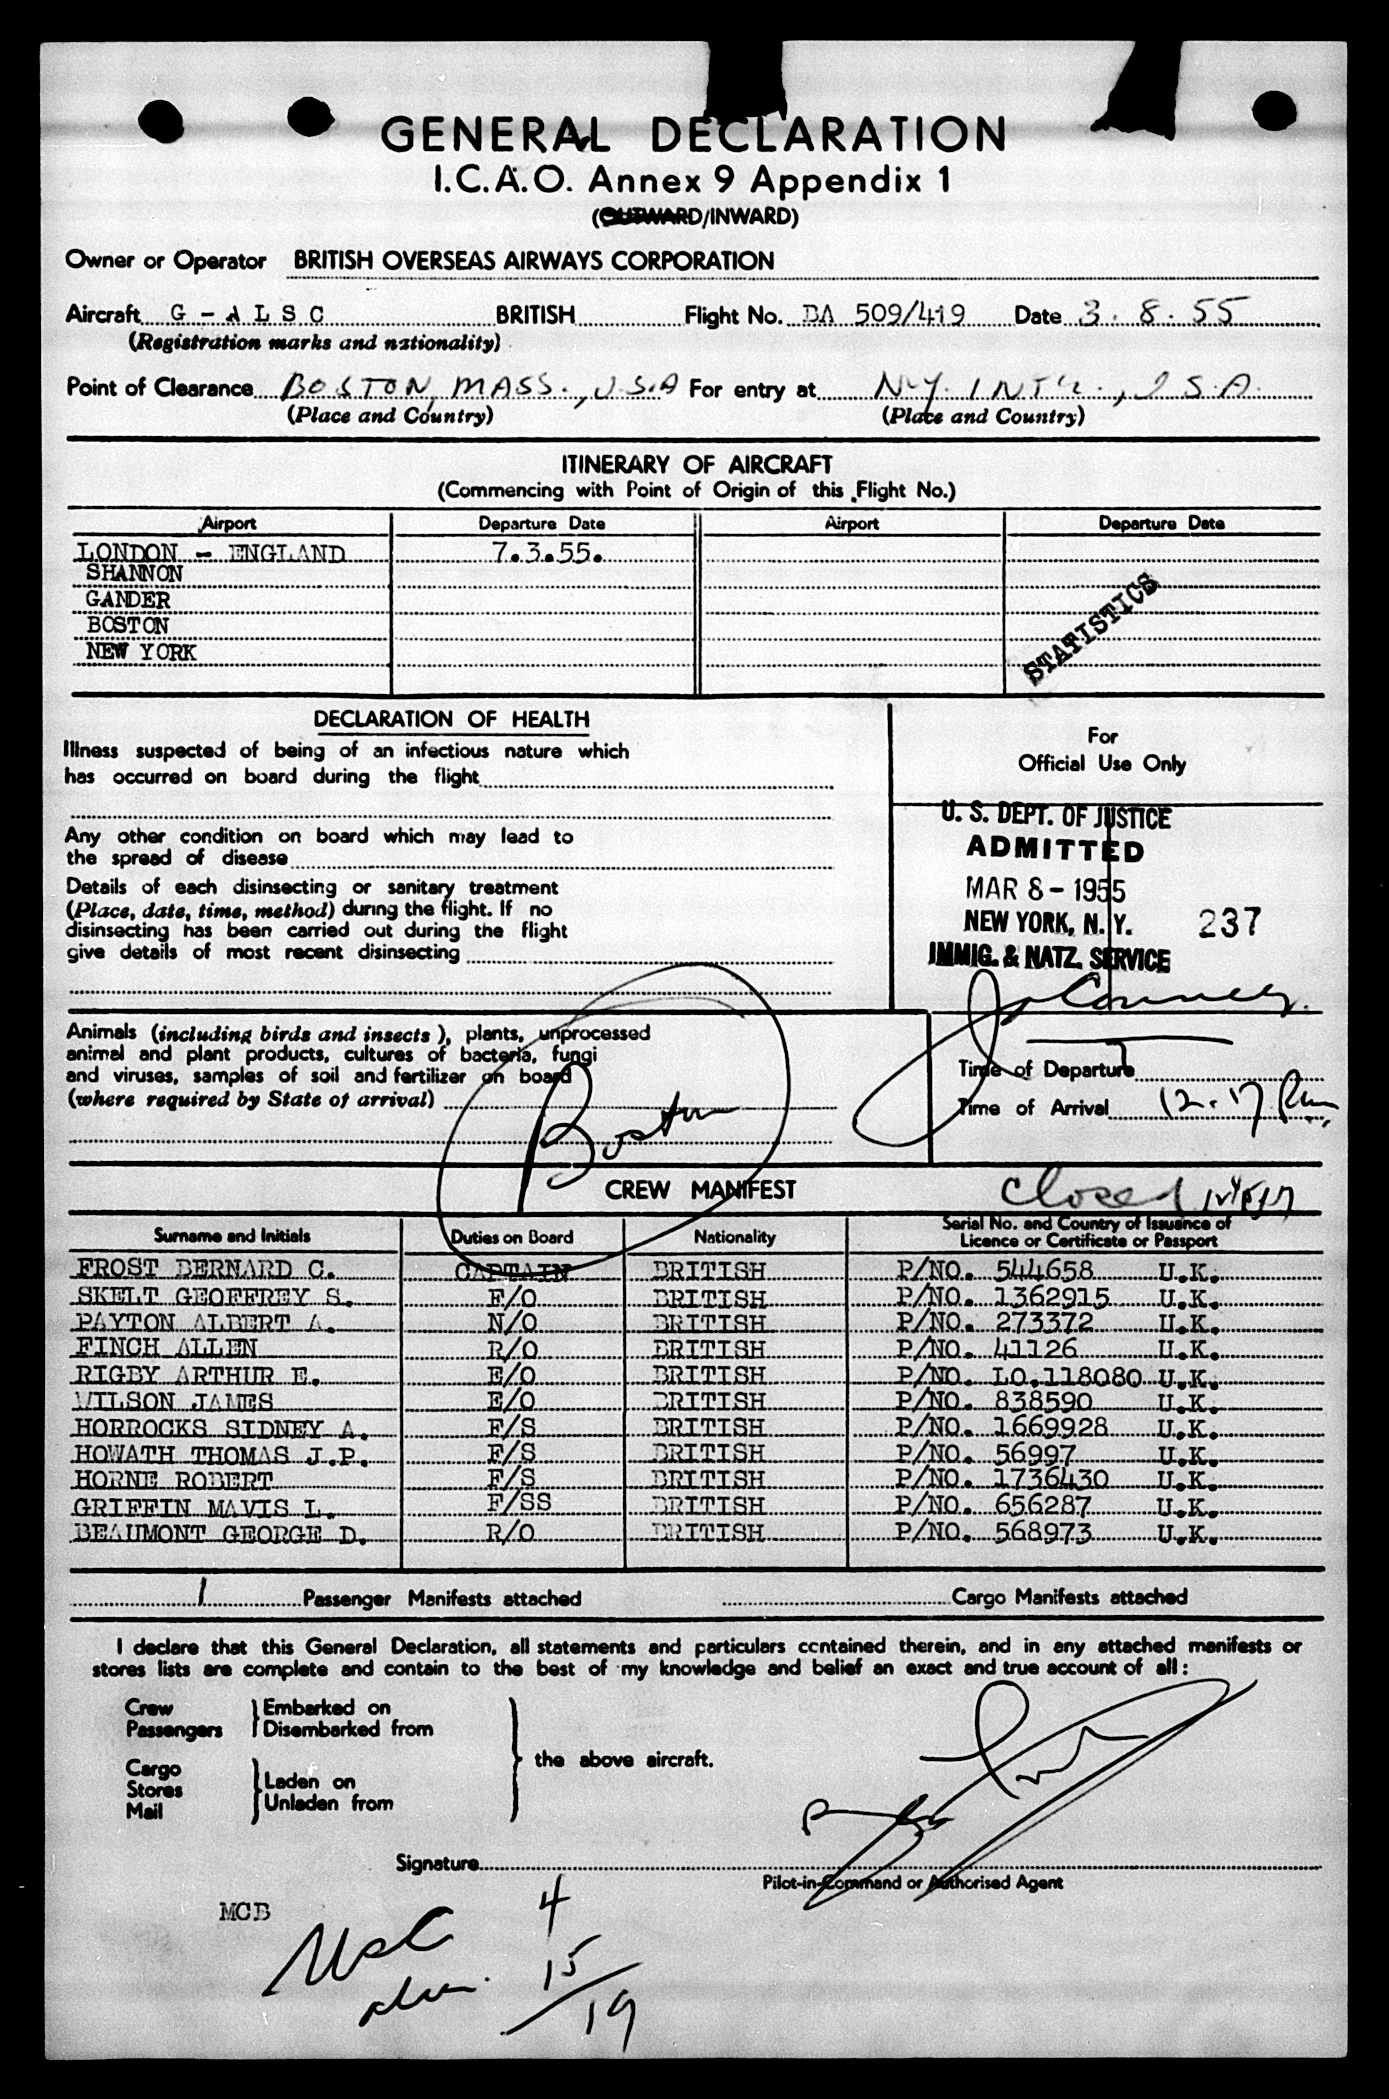 GENERAL DECLARATION
I.C.A.O. Annex 9 Appendix 1
(OUTWARD/INWARD)
Owner or Operator BRITISH OVERSEAS AIRWAYS CORPORATION
Aircraft G - A L S C BRITISH Flight No. BA 509/419 Date 3. 8. 55
(Registration marks and nationality)
Point of Clearance BOSTON, MASS., U.S.A For entry at N.Y. INT'L., U.S.A.
(Place and Country) (Place and Country)
ITINERARY OF AIRCRAFT
(Commencing with Point of Origin of this Flight No.)
Airport Departure Date Airport Departure Date
LONDON - ENGLAND 7.3.55.
SHANNON
GANDER
BOSTON
NEW YORK
STATISTICS
DECLARATION OF HEALTH
Illness suspected of being of an infectious nature which
has occurred on board during the flight
Any other condition on board which may lead to
the spread of disease
Details of each disinsecting or sanitary treatment
(Place, date, time, method) during the flight. If no
disinsecting has been carried out during the flight
give details of most recent disinsecting
For
Official Use Only
U. S. DEPT. OF JUSTICE
ADMITTED
MAR 8 - 1955
NEW YORK, N. Y. 237
IMMIG. & NATZ. SERVICE
Animals (including birds and insects), plants, unprocessed
animal and plant products, cultures of bacteria, fungi
and viruses, samples of soil and fertilizer on board
(where required by State of arrival)
Boston
Time of Departure
Time of Arrival 12.17 Pm
CREW MANIFEST
Closed
Surname and Initials Duties on Board Nationality Serial No. and Country of Issuance of
Licence or Certificate or Passport
FROST BERNARD C. CAPTAIN BRITISH P/NO. 544658 U.K.
SKELT GEOFFREY S. F/O BRITISH P/NO. 1362915 U.K.
PAYTON ALBERT A. N/O BRITISH P/NO. 273372 U.K.
FINCH ALLEN R/O BRITISH P/NO. 41126 U.K.
RIGBY ARTHUR E. E/O BRITISH P/NO. LO.118080 U.K.
WILSON JAMES E/O BRITISH P/NO. 838590 U.K.
HORROCKS SIDNEY A. F/S BRITISH P/NO. 1669928 U.K.
HOWATH THOMAS J.P. F/S BRITISH P/NO. 56997 U.K.
HORNE ROBERT F/S BRITISH P/NO. 1736430 U.K.
GRIFFIN MAVIS L. F/SS BRITISH P/NO. 656287 U.K.
BEAUMONT GEORGE D. R/O BRITISH P/NO. 568973 U.K.
1 Passenger Manifests attached Cargo Manifests attached
I declare that this General Declaration, all statements and particulars contained therein, and in any attached manifests or
stores lists are complete and contain to the best of my knowledge and belief an exact and true account of all:
Crew Embarked on
Passengers Disembarked from
the above aircraft.
Cargo
Stores Laden on
Mail Unladen from
Signature
Pilot-in-Command or Authorised Agent
MCB
4
15
19